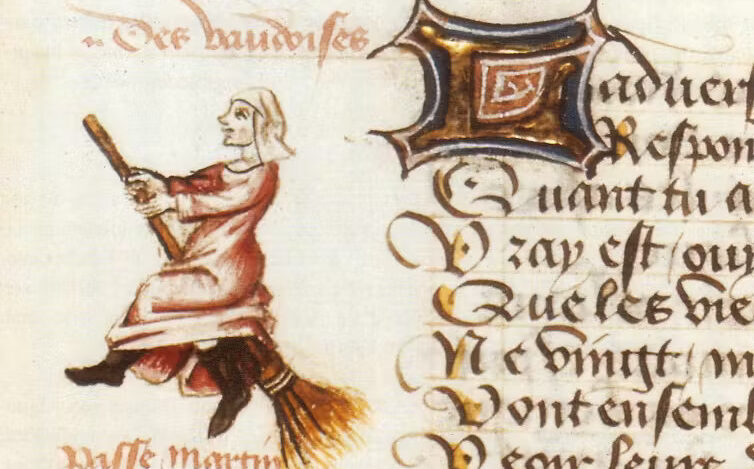 Des vaudoises
Ladvers
Respon
Quant tu a
Vray est / ouy
Que les vie
Ne vingt /
Vont ensemb
Veoir leurs
passe martin